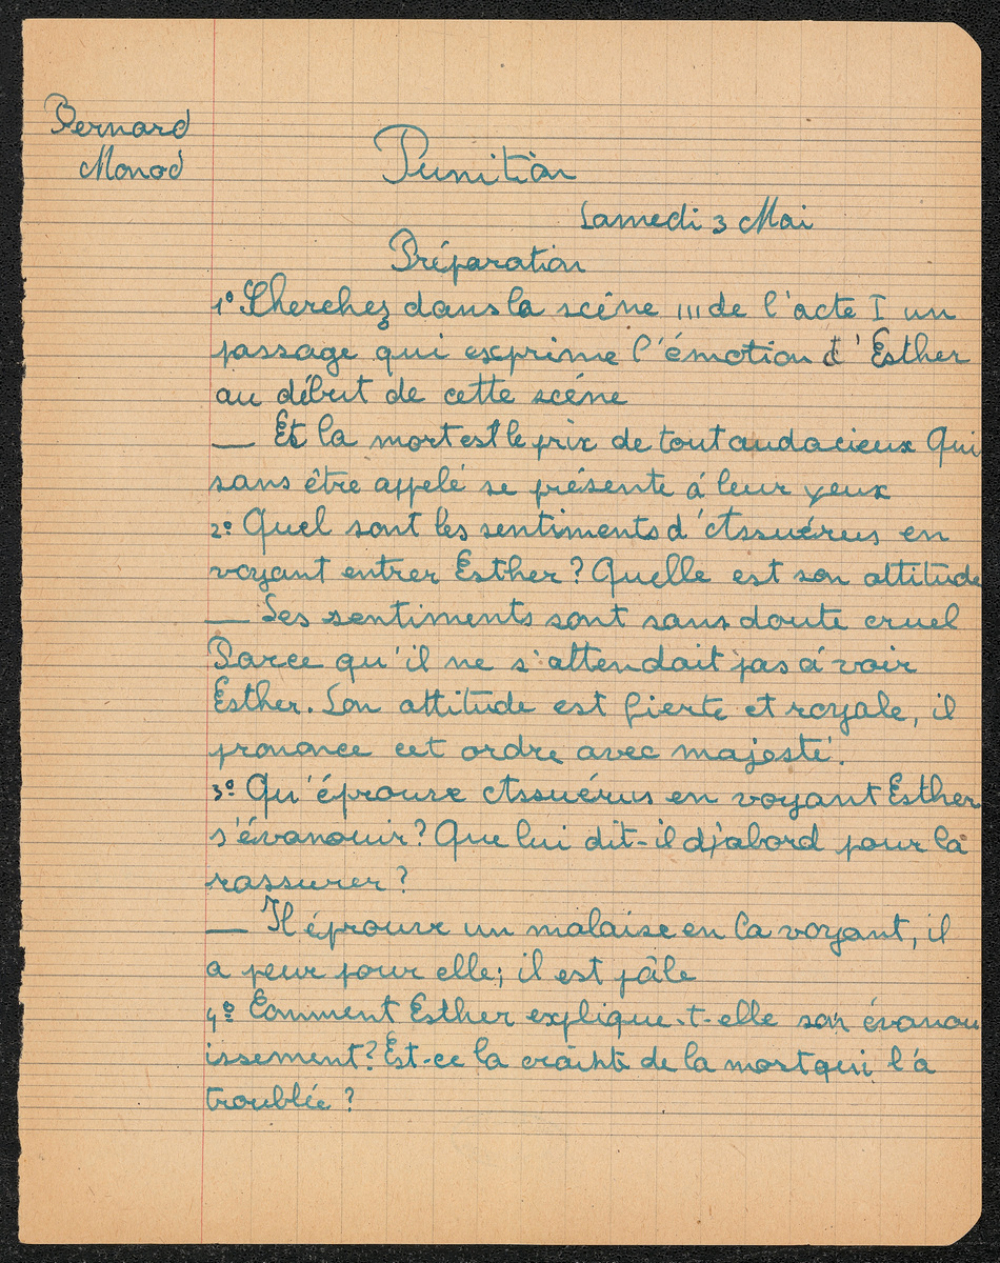 Bernard
Monod
Punition
Samedi 3 Mai
Préparation
1° Cherchez dans la scène III de l'acte I un
passage qui exprime l'émotion d'Esther
au début de cette scéne
— Et la mort est le prix de tout audacieux Qui
sans être appelé se présente à leur yeux
2° Quel sont les sentiments d'Assuérus en
voyant entrer Esther ? Quelle est son attitude
— Ses sentiments sont sans doute cruel
Parce qu'il ne s'attendait pas à voir
Esther. Son attitude est fierte et royale, il
prononce cet ordre avec majesté.
3° Qu'éprouve Assuérus en voyant Esther
s'évanouir ? Que lui dit-il d'abord pour la
rassurer ?
— Il éprouve un malaise en la voyant, il
a peur pour elle; il est pâle
4° Comment Esther explique-t-elle son évanou
issement ? Est-ce la crainte de la mort qui l'a
troublée ?